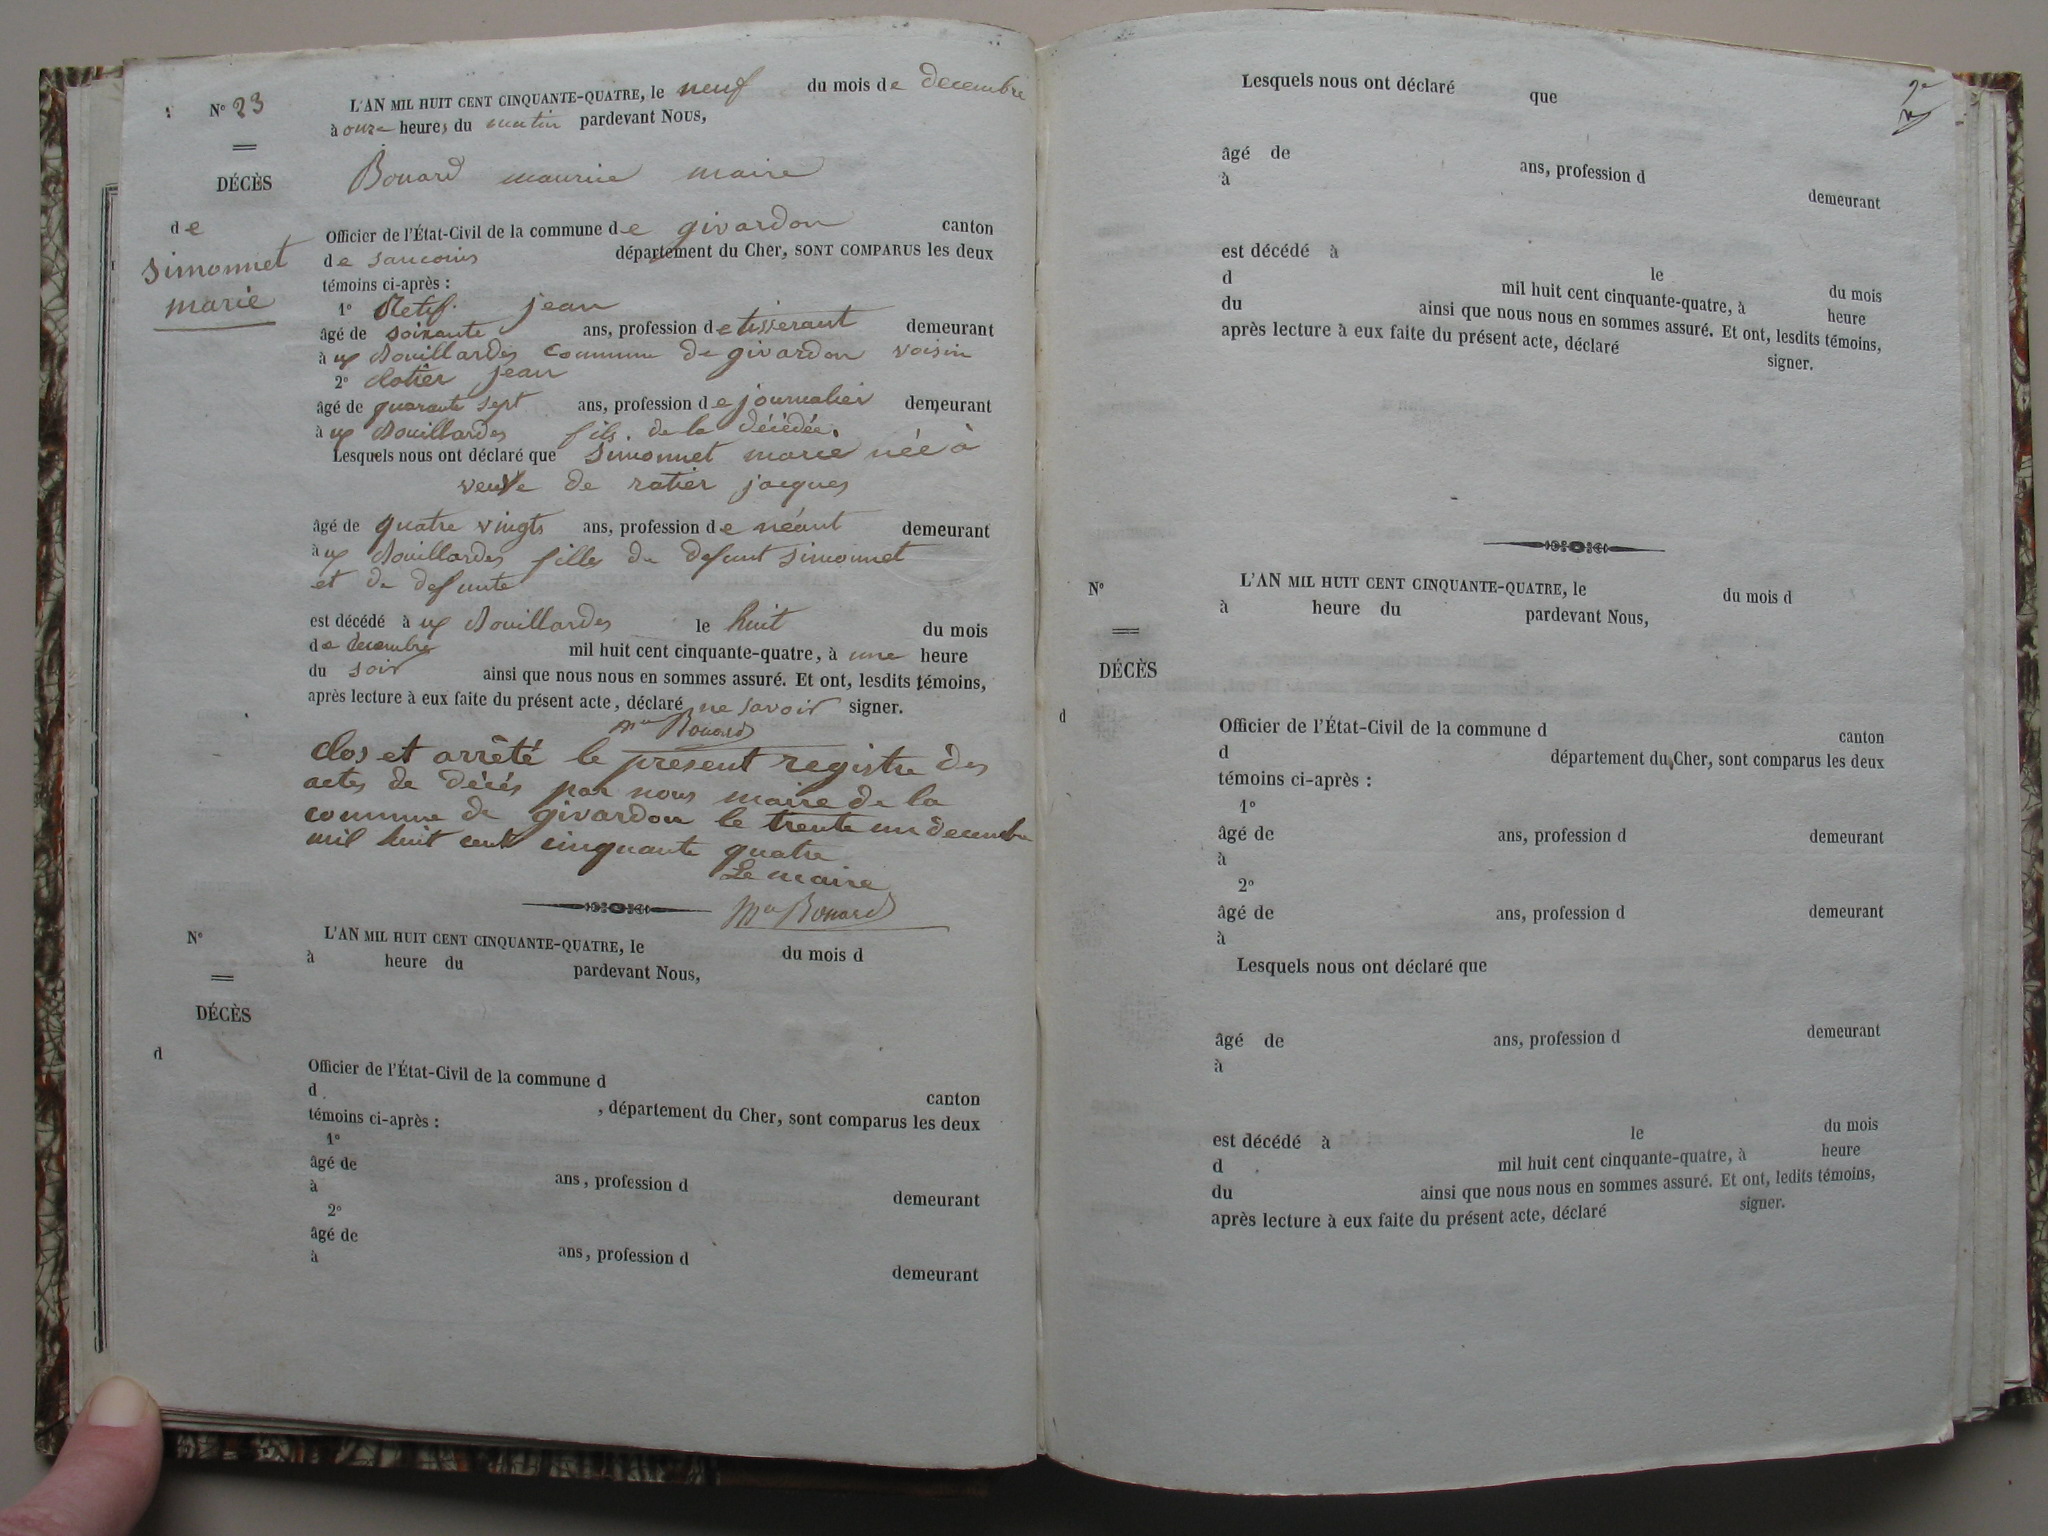 N° 23
L'AN MIL HUIT CENT CINQUANTE-QUATRE, le neuf du mois de decembre
à onze heures du matin pardevant NOUS,
DÉCÈS
Bouard maurice maire
de
simonnet
marie
Officier de l'État-Civil de la commune de givardon canton
de sancoins département du Cher, SONT COMPARUS les deux
témoins ci-après :
1° Retif jean
âgé de soixante ans, profession de tisserant demeurant
à ux Douillardes commune de givardon voisin
2° jean
âgé de quarante sept ans, profession de journalier demeurant
à ux Douillardes fils de la décédée.
Lesquels nous ont déclaré que Simonnet marie née à
veuve de ratier jacques
âgé de quatre vingts ans, profession de néant demeurant
à ux Douillardes fille de defunt simonnet
et de defunte
est décédé à ux Douillardes le huit du mois
de decembre mil huit cent cinquante-quatre, à une heure
du soir ainsi que nous nous en sommes assuré. Et ont, lesdits témoins,
après lecture à eux faite du présent acte, déclaré ne savoir signer.
Mce Bouard
clos et arrêté le present registre des
actes de décés par nous maire de la
commune de givardon le trente un decembre
mil huit cent cinquante quatre
Le maire
Mce Bouard
N°
L'AN MIL HUIT CENT CINQUANTE-QUATRE, le du mois d
à heure du pardevant Nous,
DÉCÈS
d
Officier de l'État-Civil de la commune d canton
d , département du Cher, sont comparus les deux
témoins ci-après :
1°
âgé de ans, profession d demeurant
à
2°
âgé de ans, profession d demeurant
à
Lesquels nous ont déclaré que
âgé de ans, profession d demeurant
à
est décédé à le du mois
d mil huit cent cinquante-quatre, à heure
du ainsi que nous nous en sommes assuré. Et ont, lesdits témoins,
après lecture à eux faite du présent acte, déclaré signer.
N°
L'AN MIL HUIT CENT CINQUANTE-QUATRE, le du mois d
à heure du pardevant Nous,
DÉCÈS
d
Officier de l'État-Civil de la commune d canton
d département du Cher, sont comparus les deux
témoins ci-après :
1°
âgé de ans, profession d demeurant
à
2°
âgé de ans, profession d demeurant
à
Lesquels nous ont déclaré que
âgé de ans, profession d demeurant
à
est décédé à le du mois
d mil huit cent cinquante-quatre, à heure
du ainsi que nous nous en sommes assuré. Et ont, ledits témoins,
après lecture à eux faite du présent acte, déclaré signer.